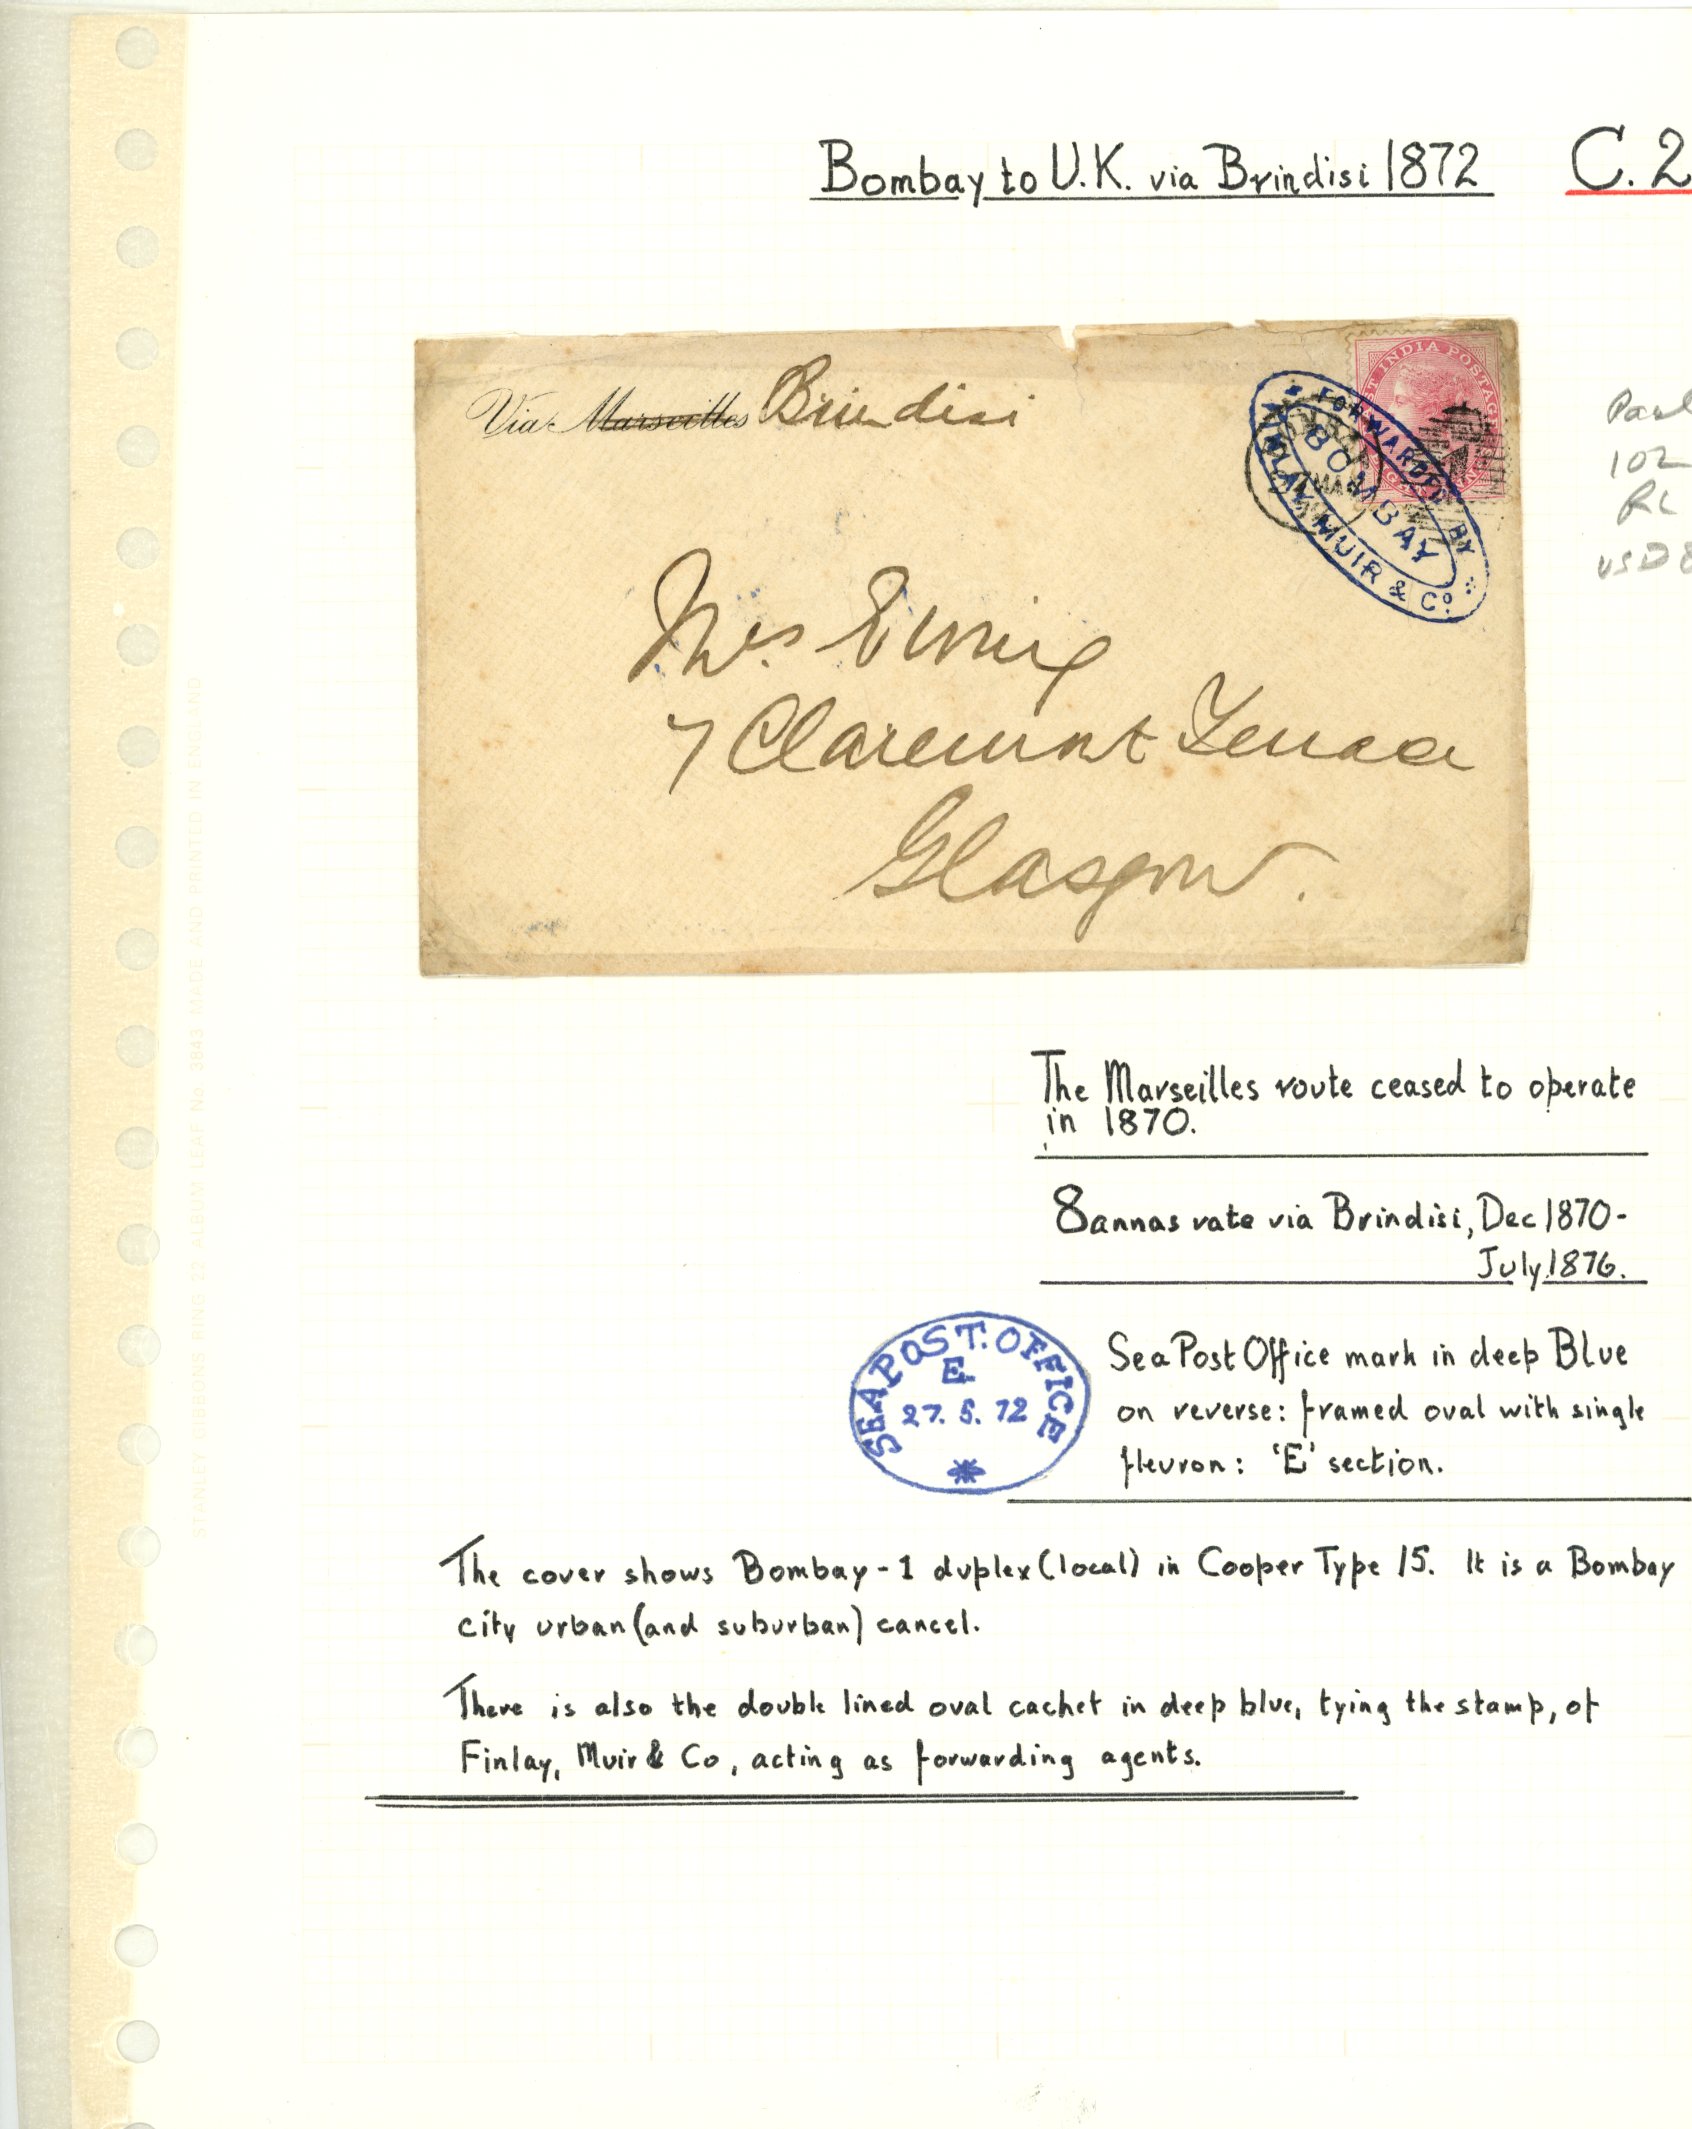 Bombay to U.K. via Brindisi 1872 C.2
Via Marseilles Brindisi
EAST INDIA POSTAGE
FORWARDED BY
BOMBAY
FINLAY MUIR & Co.
Mrs Ewing
7 Claremont Terrace
Glasgow.
102
USD 8
The Marseilles route ceased to operate
in 1870.
8 annas rate via Brindisi, Dec 1870-
July 1876.
SEA POST. OFFICE
E
27. 5. 72
Sea Post Office mark in deep Blue
on reverse: framed oval with single
fleuron: 'E' section.
The cover shows Bombay-1 duplex (local) in Cooper Type 15. It is a Bombay
city urban (and suburban) cancel.
There is also the double lined oval cachet in deep blue, tying the stamp, of
Finlay, Muir & Co, acting as forwarding agents.
STANLEY GIBBONS RING 22 ALBUM LEAF No. 3843 MADE AND PRINTED IN ENGLAND